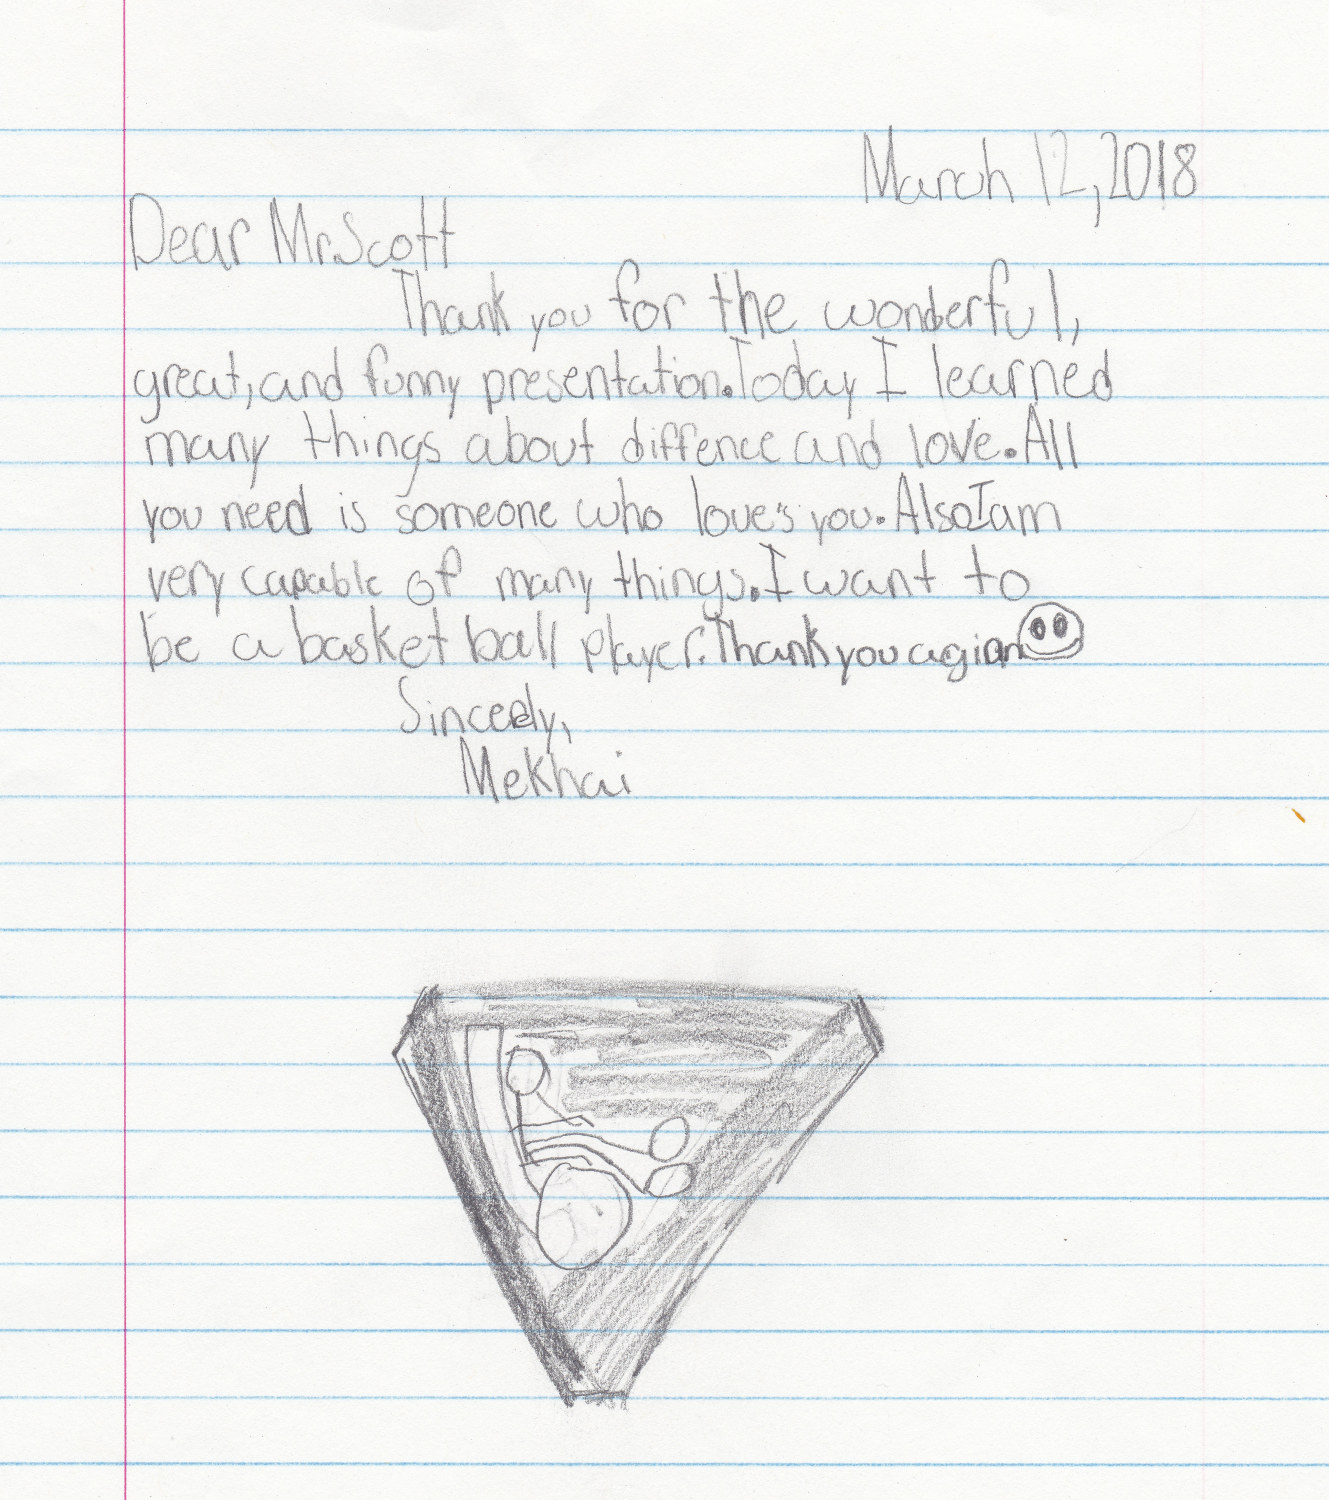 March 12, 2018
Dear Mr.Scott
Thank you for the wonderful,
great, and funny presentation. Today I learned
many things about diffence and love. All
you need is someone who love's you. Also I am
very capable of many things. I want to
be a basket ball player. Thank you agian
Sincerly,
Mekhai